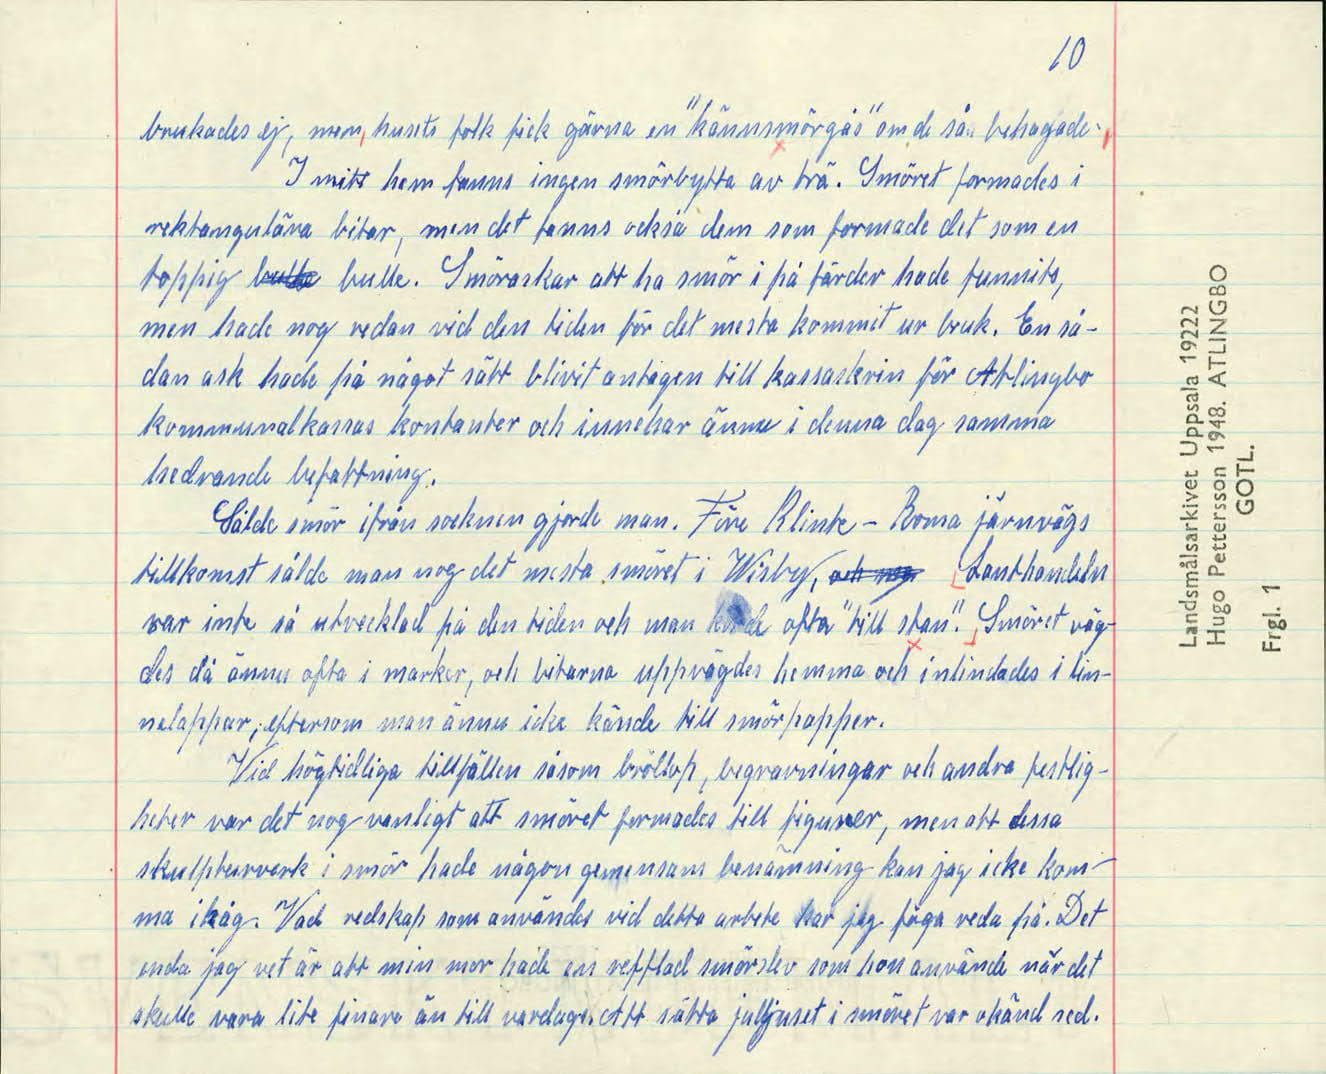 10
brukades ej, men husets folk fick gärna en "kännsmörgås" om de så behagade.
I mitt hem fanns ingen smörbytta av trä. Smöret formades i
rektangulära bitar, men det fanns också dem som formade det som en
toppig bulle. Smöraskar att ha smör i på färder hade funnits,
men hade nog redan vid den tiden för det mesta kommit ur bruk. En så-
dan ask hade på något sätt blivit antagen till kassaskrin för Atlingbo
kommunalkassas kontanter och innehar ännu i denna dag samma
hedrande befattning.
Sålde smör ifrån socknen gjorde man. Före Klinte - Roma järnvägs
tillkomst sålde man nog det mesta smöret i Wisby, och nog Lanthandeln
var inte så utvecklad på den tiden och man körde ofta "till stan". Smöret väg-
des då ännu ofta i marker, och bitarna uppvägdes hemma och inlindades i lin-
nelappar, eftersom man ännu icke kände till smörpapper.
Vid högtidliga tillfällen såsom bröllop, begravningar och andra festlig-
heter var det nog vanligt att smöret formades till figurer, men att dessa
skulpturverk i smör hade någon gemensam benämning kan jag icke kom-
ma ihåg. Vad redskap som användes vid detta arbete har jag föga reda på. Det
enda jag vet är att min mor hade en refflad smörslev som hon använde när det
skulle vara lite finare än till vardags. Att sätta julljuset i smöret var okänd sed.
Landsmålsarkivet Uppsala 19222
Hugo Pettersson 1948. ATLINGBO
GOTL.
Frgl. 1